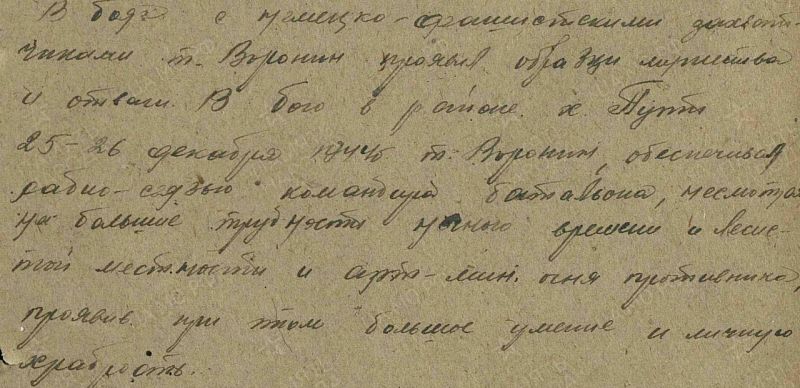 В боях с немецко-фашистскими захват-
чиками т. Воронин проявил образцы мужества
и отваги. В бою в районе х. Пути
25-26 декабря 1944 г. т. Воронин, обеспечивая
радио-связью командира батальона, несмотря
на большие трудности ночного времени и лесис-
той местности и арт-мин. огня противника,
проявив при этом большое умение и личную
храбрость.